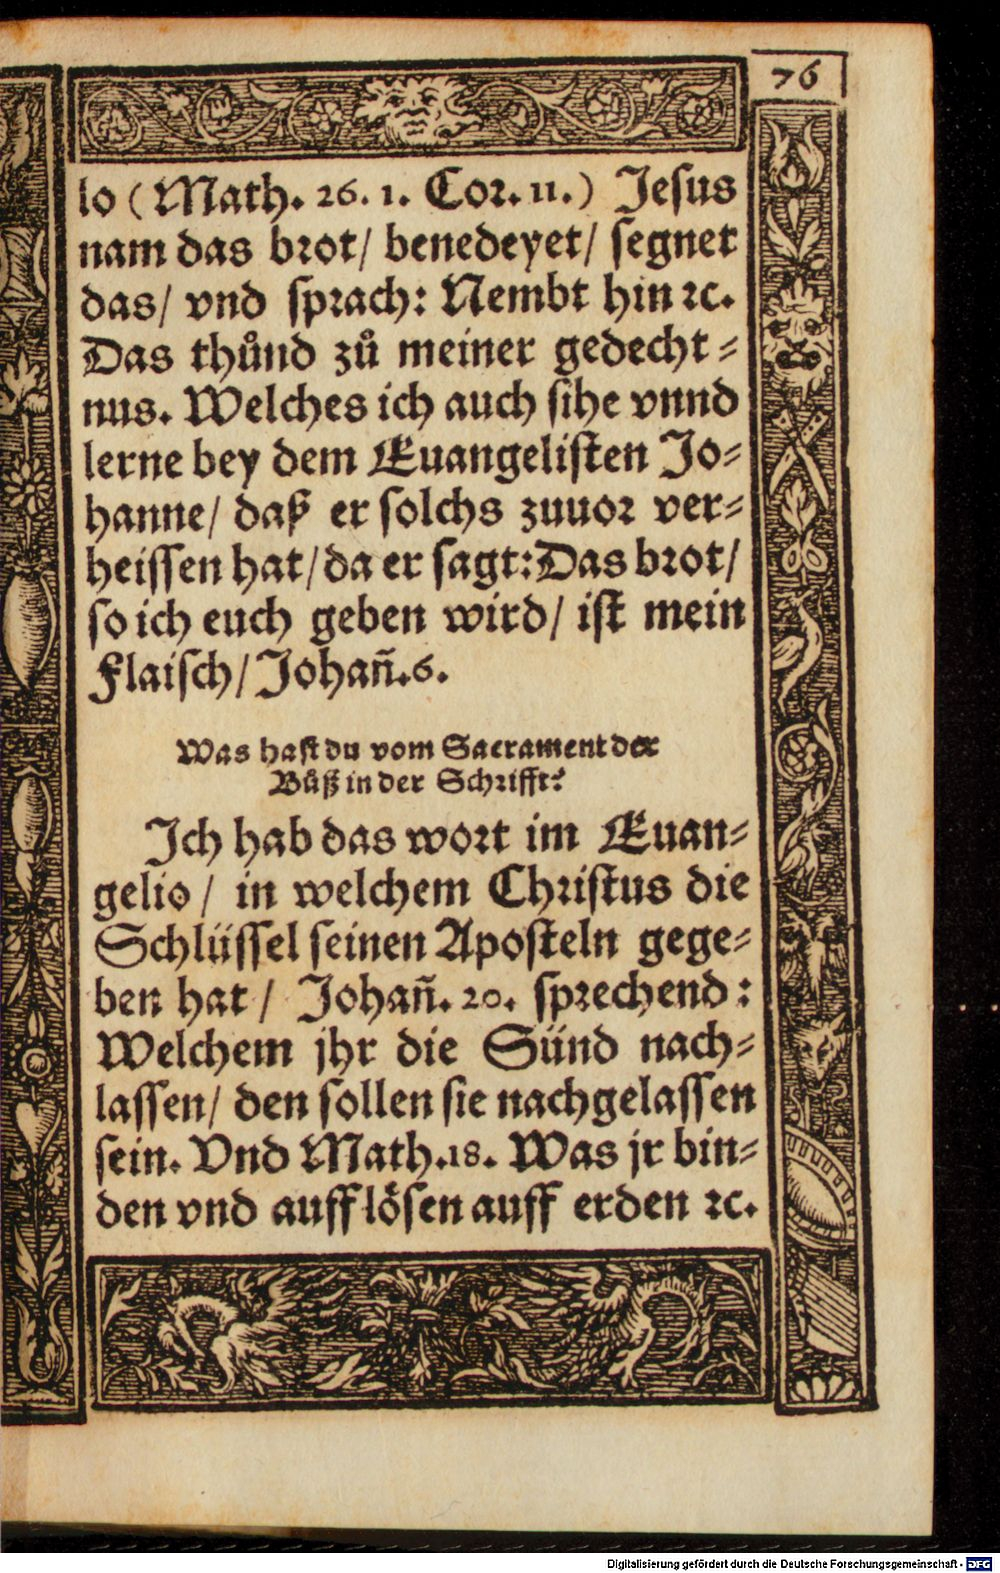 76
lo (Math. 26. 1. Cor. 11.) Jesus
nam das brot/ benedeyet/ segnet
das/ vnd sprach: Nembt hin ꝛc.
Das thůnd zů meiner gedecht⸗
nus. Welches ich auch sihe vnnd
lerne bey dem Euangelisten Jo⸗
hanne/ daß er solchs zuuor ver⸗
heissen hat/ da er sagt: Das brot/
so ich euch geben wird/ ist mein
Flaisch/ Johañ. 6.
Was hast du vom Sacrament der
Bůß in der Schrifft?
Ich hab das wort im Euan⸗
gelio/ in welchem Christus die
Schlüssel seinen Aposteln gege⸗
ben hat/ Johañ. 20. sprechend:
Welchem jhr die Sünd nach⸗
lassen/ den sollen sie nachgelassen
sein. Vnd Math. 18. Was jr bin⸗
den vnd aufflösen auff erden ꝛc.
Digitalisierung gefördert durch die Deutsche Forschungsgemeinschaft - DFG